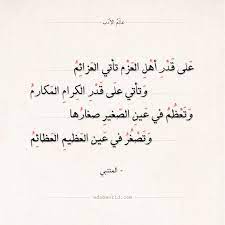 عالم الأدب
عَلى قَدْرِ أَهْلِ العَزْمِ تَأتي العَزائِمُ
وَتأتي عَلى قَدْرِ الكِرامِ المَكارِمُ
وَتَعْظُمُ في عَينِ الصّغيرِ صغارُها
وَتَصْغُرُ في عَين العَظيمِ العَظائِمُ
- المتنبي
adabworld.com